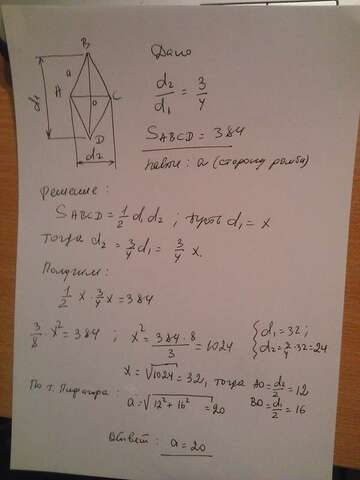 Дано
B
a
d₁
A
o
C
D
d₂
d₂/d₁ = 3/4
S ABCD = 384
Найти: a (сторону ромба)
Решение:
S ABCD = 1/2 d₁ d₂ ; пусть d₁ = x
тогда d₂ = 3/4 d₁ = 3/4 x.
Получим:
1/2 x · 3/4 x = 384
3/8 · x² = 384 ; x² = 384 · 8/3 = 1024
{ d₁ = 32 ;
d₂ = 3/4 · 32 = 24
x = √1024 = 32, тогда AO = d₂/2 = 12
BO = d₁/2 = 16
По т. Пифагора :
a = √12² + 16² = 20
Ответ : a = 20